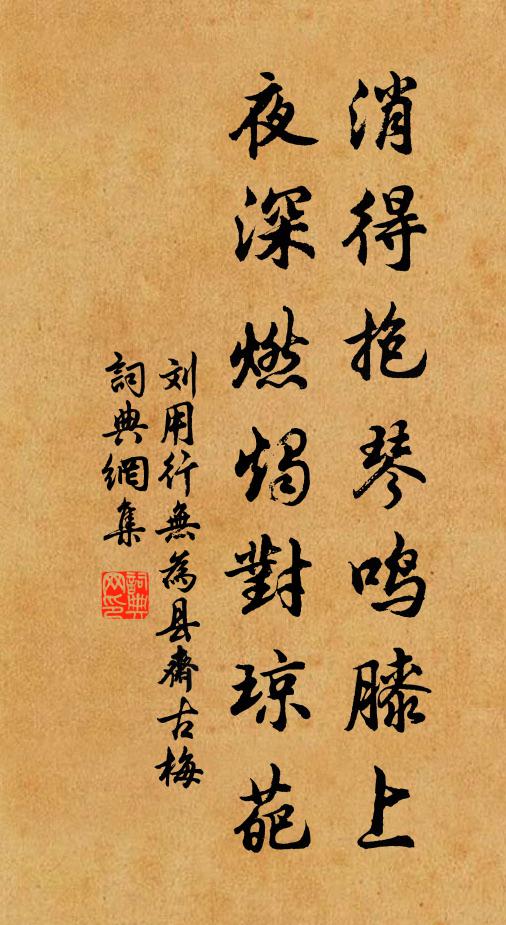 消得抱琴鸣膝上
夜深燃烛對琼葩
刘用行無為县齋古梅
詞典網集
詞典网印